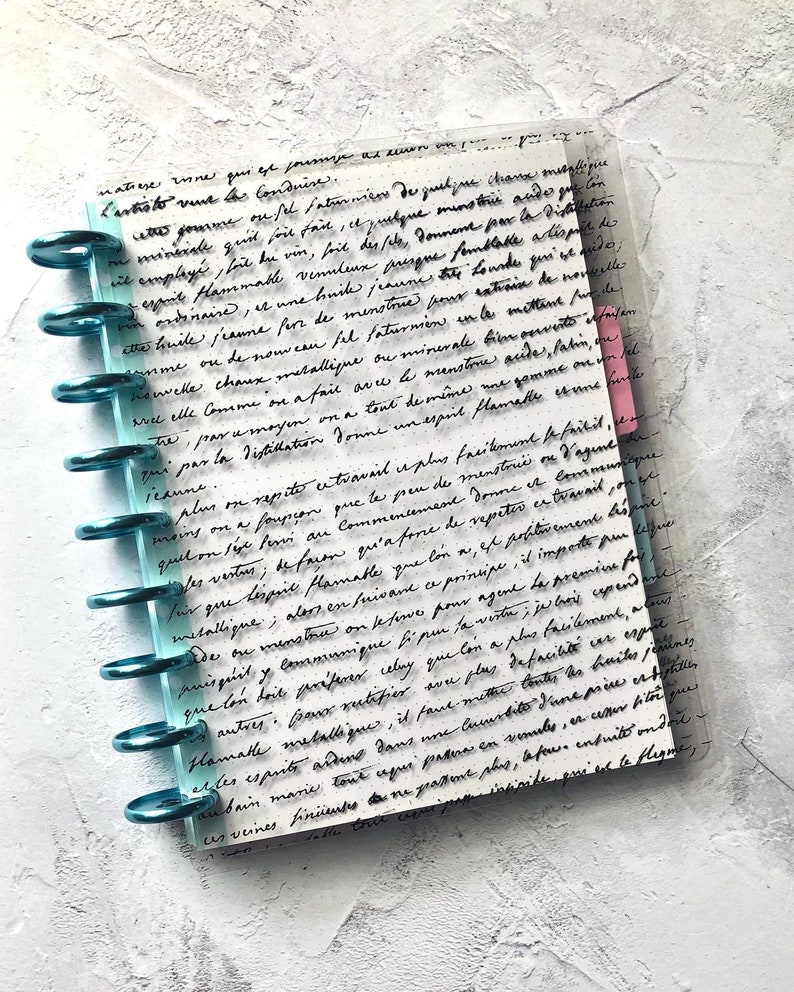 matiere qui est
L'artiste veut la Conduire.
cette gomme ou sel saturnien de quelque chaux metallique
ou minerale qu'il soit fait, et quelque menstrüe acide que l'ón
ait employé, soit du vin, soit des sels, donnent par la distillation
esprit flammable venuleux presque semblable a lésprit de
vin ordinaire, et une huile jeaune trés lourde qui est acide;
cette huile jeaune sert de menstrüe pour extraire de nouvelle
gomme ou de nouveau sel saturnien en le mettant sur de
nouvelle chaux metallique ou minerale bien ouverte et faisant
avec elle comme on a fait avec le menstrüe acide,
par ce moyen on a tout de même une gomme ou un sel
qui par la distillation donne un esprit flamable et une huile
jeaune.
plus on repete ce travail et plus facilement se fait il, et
moins on a soupçon que le peu de menstrüe ou d'agent du-
quel on s'ést servi au Commencement donne et communique
ses vertus; de façon qu'a force de repeter ce travail, on est
sûr que lésprit flammable que l'ón a, est positivement lésprit
metallique; alors en suivant ce principe, il importe peu de que
acide ou menstrüe on se serve pour agent la premiere fois,
puisqu'il y communique si peu sa vertu; je crois cependant
que l'ón doit préferer celuy que l'ón a plus facilement, a tous
les autres. pour rectifier avec plus de facilité cet esprit
flamable metallique, il faut mettre toutes les huiles jeaunes
et les esprits ardens dans une cucurbite d'une piéce et distiller
au bain marie tout ce qui passera en venules, et cesser sitôt que
ces veines sinüeuses ne passent plus, le feu. ensuite on doit
tout ce qui passe qui est le flegme,